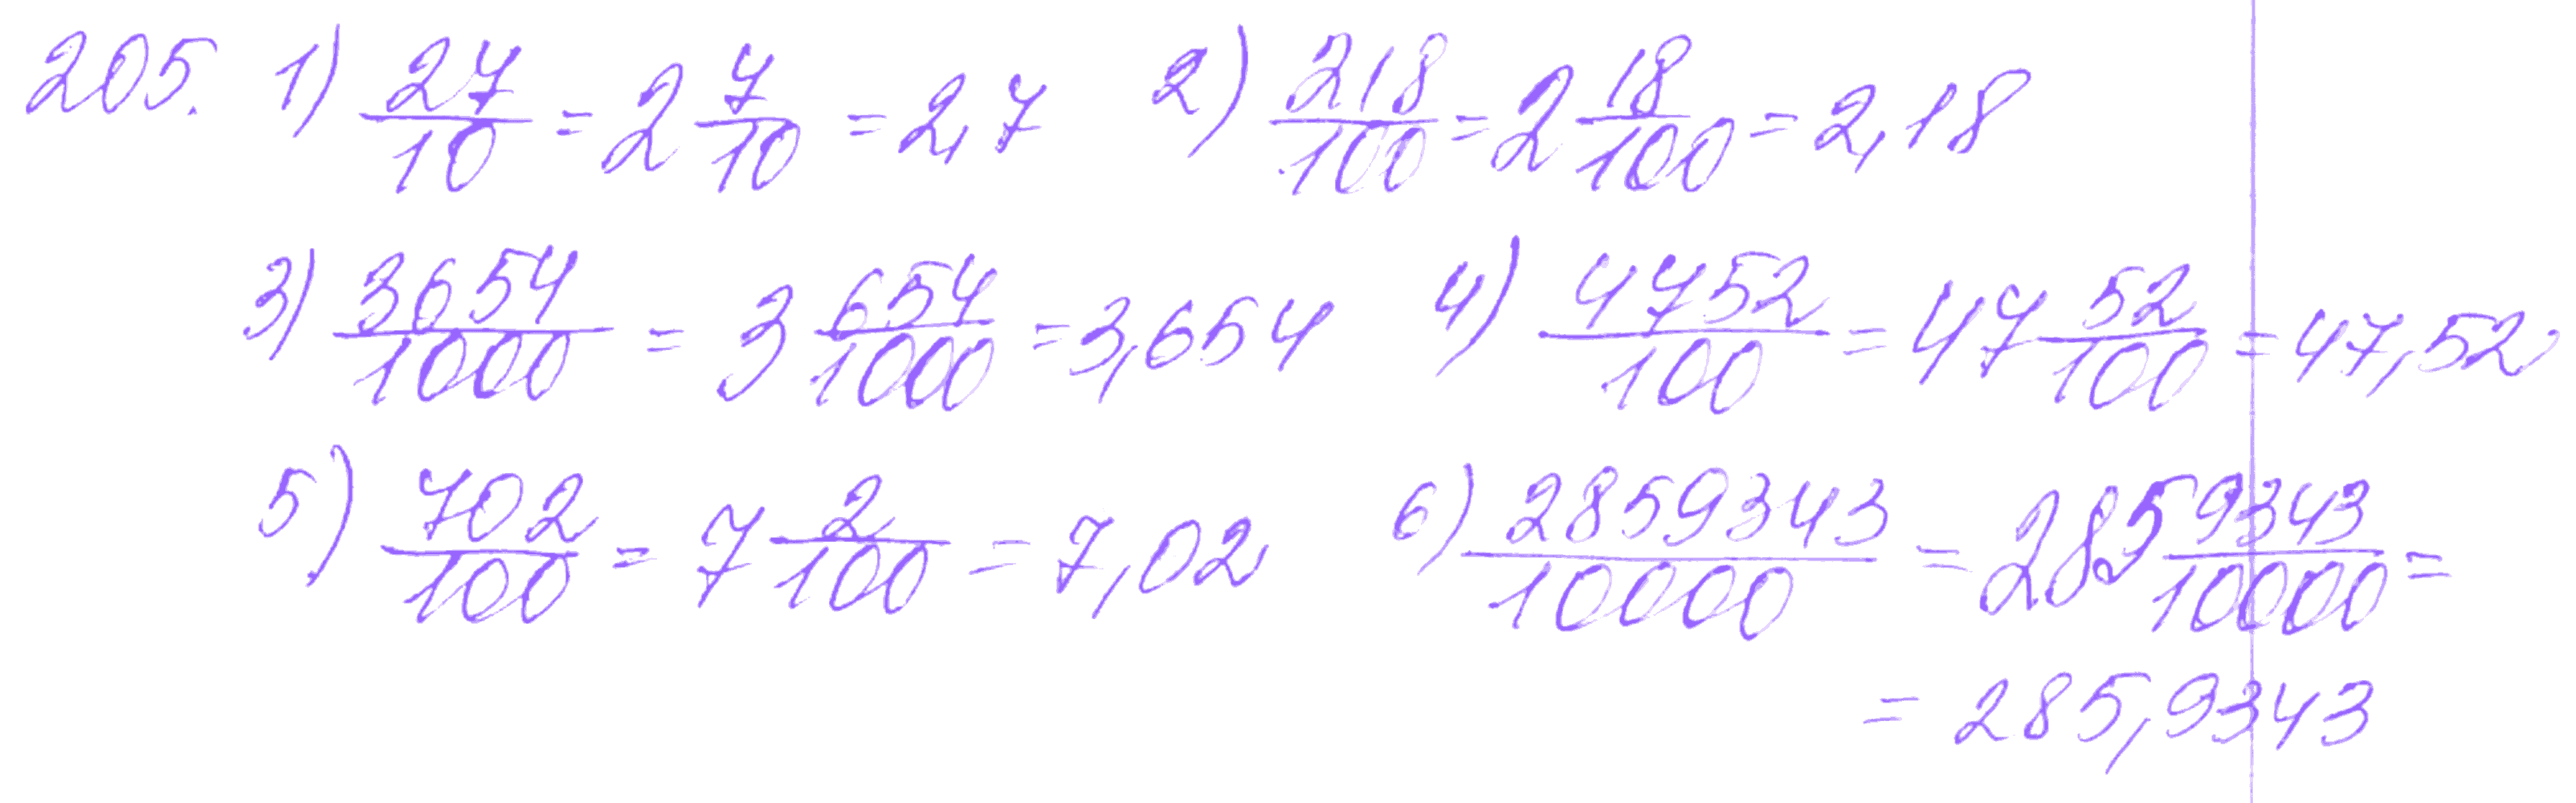 205. 1) 27/10 = 2 7/10 = 2,7 2) 218/100 = 2 18/100 = 2,18
3) 3654/1000 = 3 654/1000 = 3,654 4) 4752/100 = 47 52/100 = 47,52
5) 702/100 = 7 2/100 = 7,02 6) 2859343/10000 = 285 9343/10000 =
= 285,9343